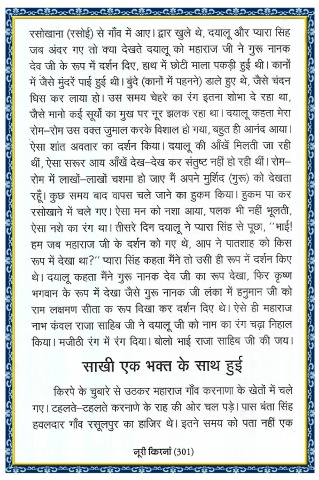 रसोखाना (रसोई) से गाँव में आए। द्वार खुले थे, दयालू और प्यारा सिंह
जब अंदर गए तो क्या देखते दयालू को महाराज जी ने गुरू नानक
देव जी के रूप में दर्शन दिए, हाथ में छोटी माला पकड़ी हुई थी। कानों
में जैसे मुंदरें पाई हुई थी। बुंदे (कानों में पहनने) डाले हुए थे, जैसे चंदन
घिस कर लाया हो। उस समय चेहरे का रंग इतना शोभा दे रहा था,
जैसे मानो कई सूर्यों का मुख पर नूर झलक रहा था। दयालू कहता मेरा
रोम–रोम उस वक्त जुमाल करके विशाल हो गया, बहुत ही आनंद आया।
ऐसा शांत अवतार का दर्शन किया। दयालू की आँखें मिलती जा रही
थीं, ऐसा सरूर आय आँखें देख–देख कर संतुष्ट नहीं हो रही थीं। रोम–
रोम में लाखों–लाखों चशमा हो जाए मैं अपने मुर्शिद (गुरू) को देखता
रहूँ। कुछ समय बाद वापस चले जाने का हुकम किया। हुकम पा कर
रसोखाने में चले गए। ऐसा मन को नशा आया, पलक भी नहीं भूलती,
ऐसा नशे का रंग था। तीसरे दिन दयालू ने प्यारा सिंह से पूछा, ''भाई!
हम जब महाराज जी के दर्शन को गए थे, आप ने पातशाह को किस
रूप में देखा था?'' प्यारा सिंह कहता मैंने तो उसी ही रूप में दर्शन किए
थे। दयालू कहता मैंने गुरू नानक देव जी का रूप देखा, फिर कृष्ण
भगवान के रूप में देखा जैसे गुरू नानक जी लंका में हनुमान जी को
राम लक्षमण सीता क रूप दिखा कर दर्शन दिए थे। ऐसे ही महाराज
नाभ कंवल राजा साहिब जी ने दयालू जी को नाम का रंग चढ़ा निहाल
किया। मजीठी रंग में रंग दिया। बोलो भाई राजा साहिब जी की जय।
साखी एक भक्त के साथ हुई
किरपे के चुबारे से उठकर महाराज गाँव करनाणा के खेतों में चले
गए। टहलते–टहलते करनाणे के राह की ओर चल पड़े। पास बंता सिंह
हवलदार गाँव रसूलपुर का हाजिर थे। इतने समय को पता नहीं एक
नूरी किरनां (301)